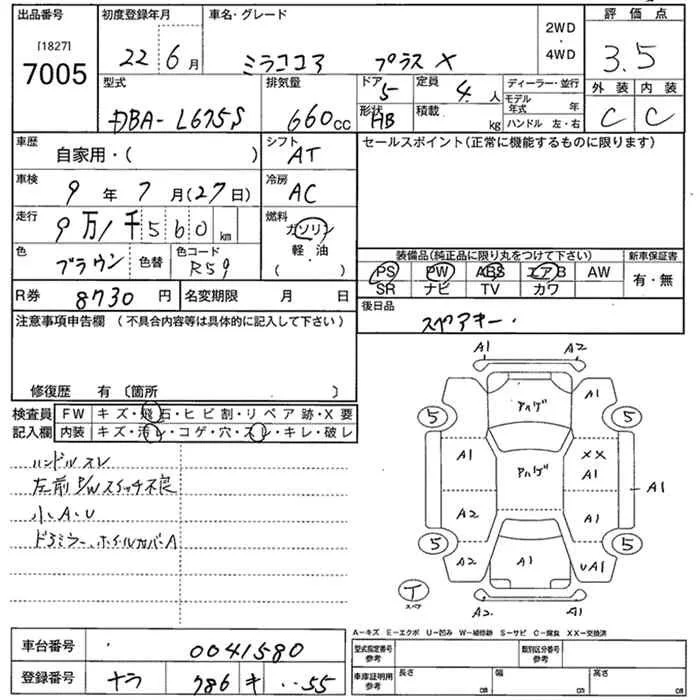 出品番号 初度登録年月 車名・グレード 評価点
[1827]
7005
22 6月 ミラココア プラス X
2WD・4WD
3.5
外装 内装
C C
型式 排気量 ドア 定員 ディーラー・並行
DBA- L675S 660cc 5 4人
モデル年式 年
形状 HB 積載 kg ハンドル 左・右
車歴 シフト セールスポイント(正常に機能するものに限ります)
自家用・( ) AT
車検 冷房
9年7月(27日) AC
走行 燃料
9万1千560km ガソリン
軽・油
( )
色 色替 色コード
ブラウン R59
装備品(純正品に限り丸をつけて下さい) 新車保証書
PS PW ABS エアB AW 有・無
SR ナビ TV カワ
R券 8730円 名変期限 月 日
後日品
スペアキー・
注意事項申告欄 (不具合内容等は具体的に記入して下さい)
修復歴 有 〔箇所 〕
検査員 FW キズ・飛石・ヒビ割・リペア跡・X要
記入欄 内装 キズ・汚レ・コゲ・穴・スレ・キレ・破レ
ハンドルスレ
左前P/Wスイッチ不良
小、A・U
ドアミラー、ホイルカバーA
A1 A2
アハゲ A1
5 5
A1 アハゲ XX A1 A1
A2 A1
5 5
A2 A1 UA1
T
スペア
A2 A1
A-キズ E-エクボ U-凹み W-補修跡 S-サビ C-腐食 XX-交換済
車台番号 0041580
登録番号 ナラ 786 キ ・・55
型式指定番号 参考 類別区分番号 参考
車庫証明用 参考 長さ cm 幅 cm 高さ cm